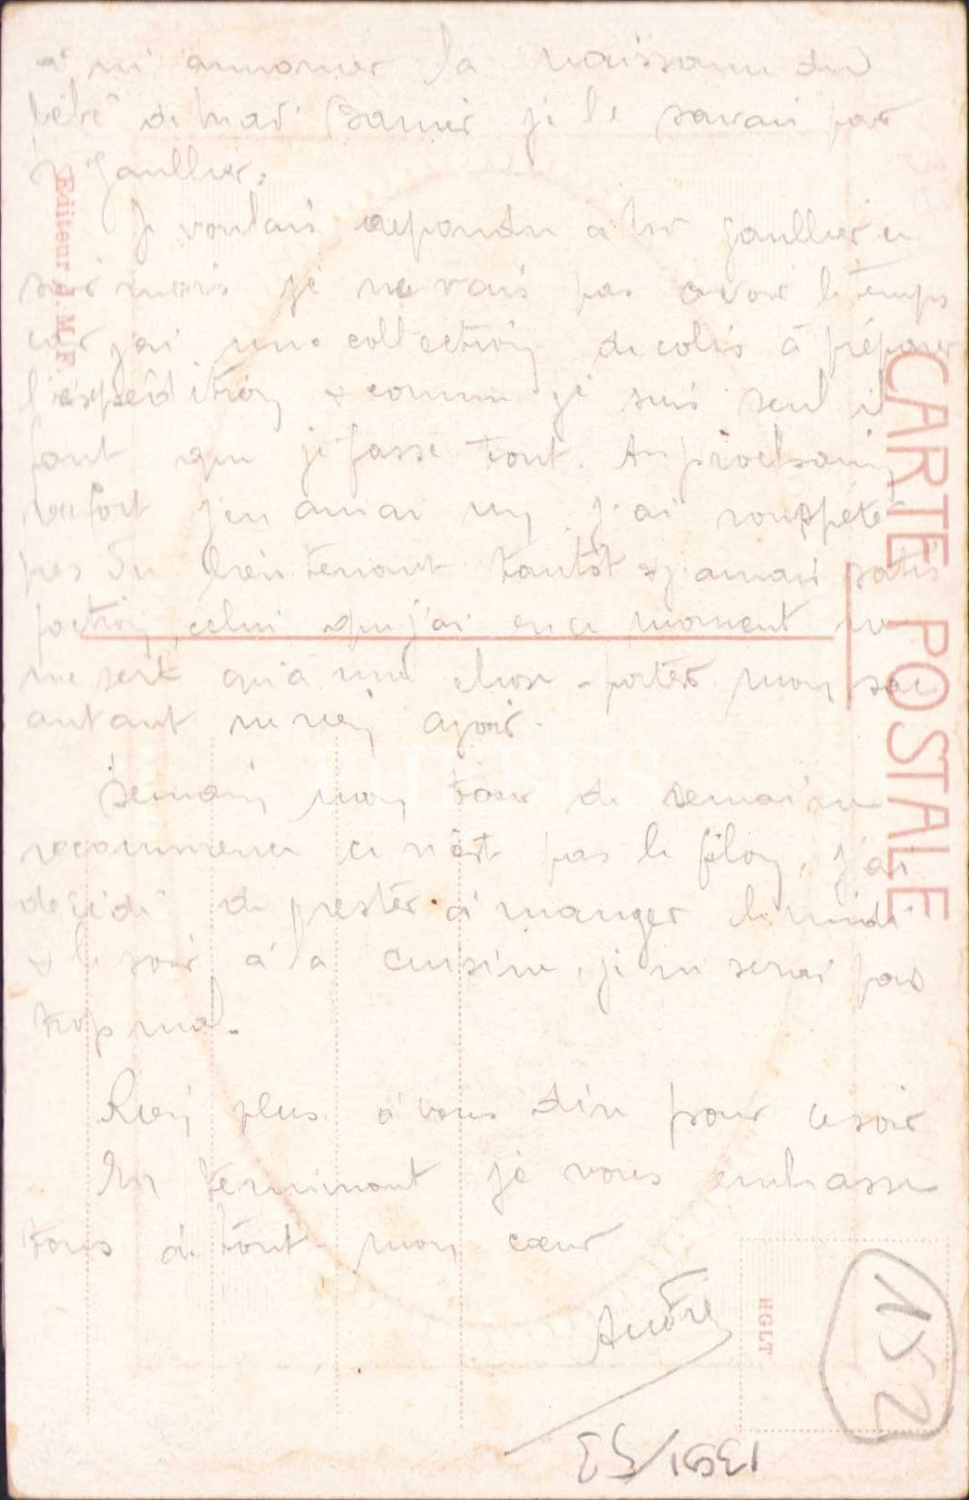 à m'annoncer la naissance du
bébé de Mad. je le savais par
Gaullier.
Je voulais repondre à Mr Gaullier ce
soir mais je ne vais pas avoir le temps
car j'ai une collection de colis à préparer
l'expédition & comme je suis seul il
faut que je fasse tout. Au prochain
renfort j'en aurai un, j'ai rouspété
près du lieutenant tantôt & j'aurais satis
faction, celui que j'ai en ce moment ne
me sert qu'à une chose - porter mon sac
autant ne rien avoir.
Demain mon tour de semaine
recommence ce n'est pas le filon, j'ai
décidé de rester à manger le midi
& le soir à la cuisine, je ne serai pas
trop mal.
Rien plus à vous dire pour ce soir
En terminant je vous embrasse
tous de tout mon cœur
André
CARTE POSTALE
Editeur d. M.F.
HGLT
152
1391/53